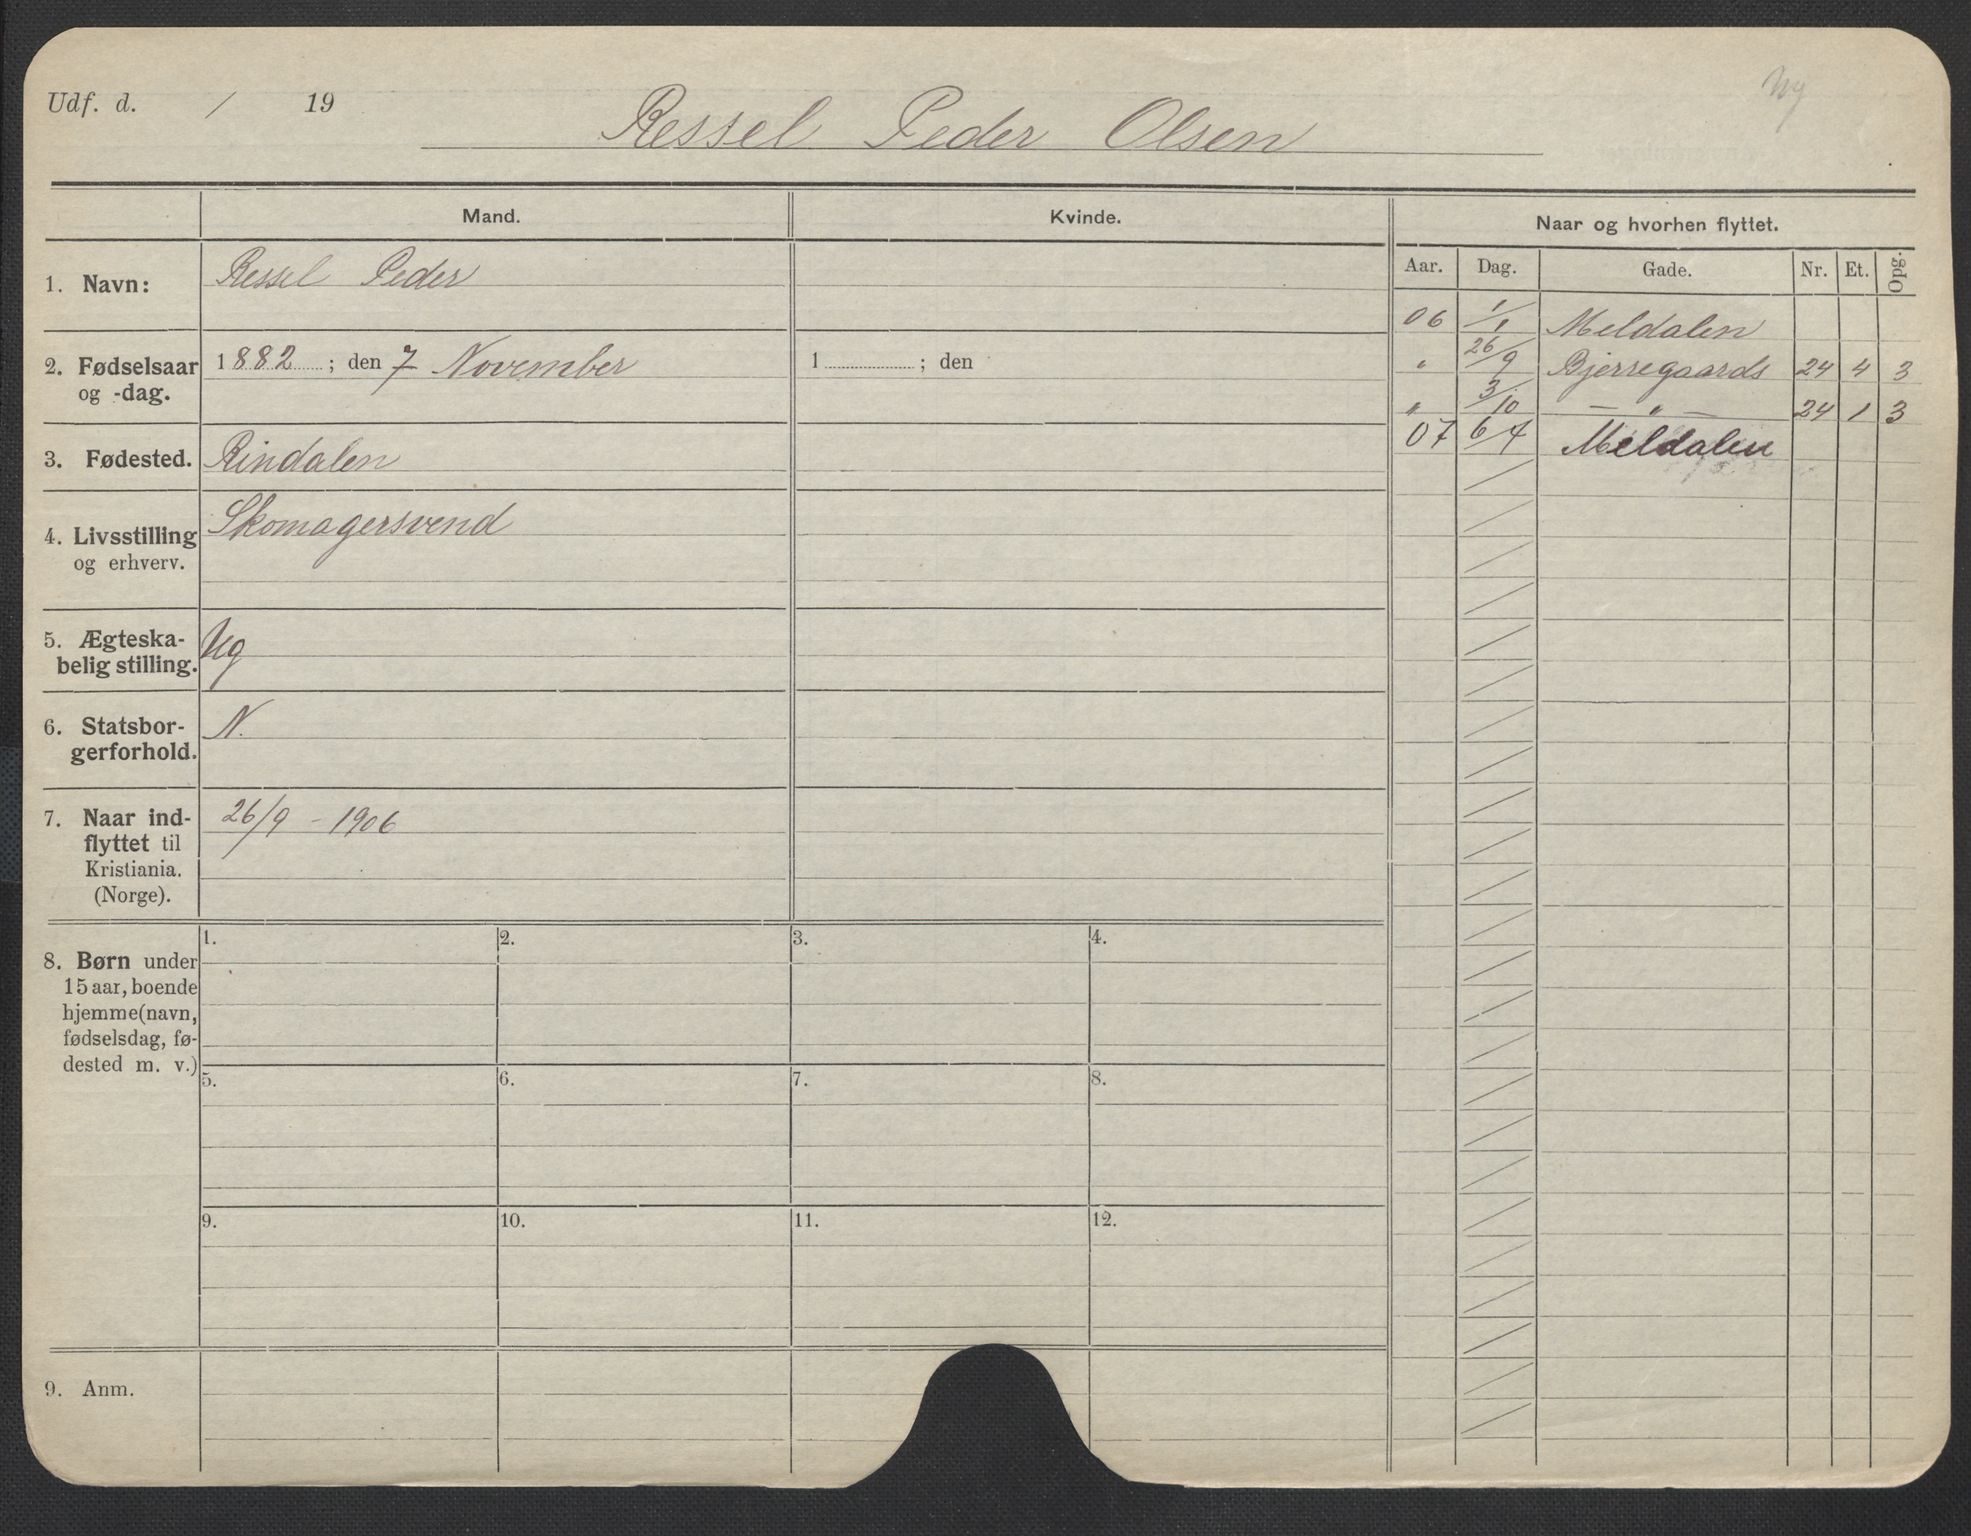 Udf. d. / 19
Ressel Peder Olsen
Ug
Mand.
Kvinde.
Naar og hvorhen flyttet.
Aar. Dag. Gade. Nr. Et. Opg.
1. Navn: Ressel Peder
2. Fødselsaar og -dag.
1882 ; den 7 November
1 ; den
3. Fødested. Rindalen
4. Livsstilling og erhverv.
Skomagersvend
5. Ægteska-
belig stilling.
Ug
6. Statsbor-
gerforhold.
N.
7. Naar ind-
flyttet til
Kristiania.
(Norge).
26/9 - 1906
06 1/1 Meldalen
" 26/9 Bjerregaards 24 4 3
" 3/10 — " — 24 1 3
07 6/4 Meldalen
8. Børn under
15 aar, boende
hjemme(navn,
fødselsdag, fø-
dested m. v.)
1. 2. 3. 4.
5. 6. 7. 8.
9. 10. 11. 12.
9. Anm.